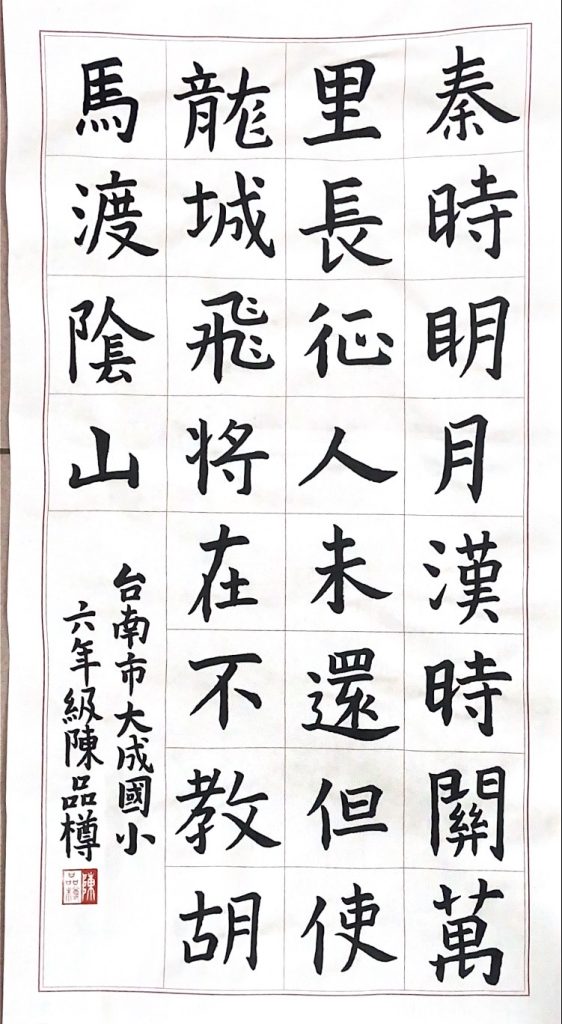 秦時明月漢時關萬
里長征人未還但使
龍城飛將在不教胡
馬渡陰山
台南市大成國小
六年級陳品樽
陳品樽